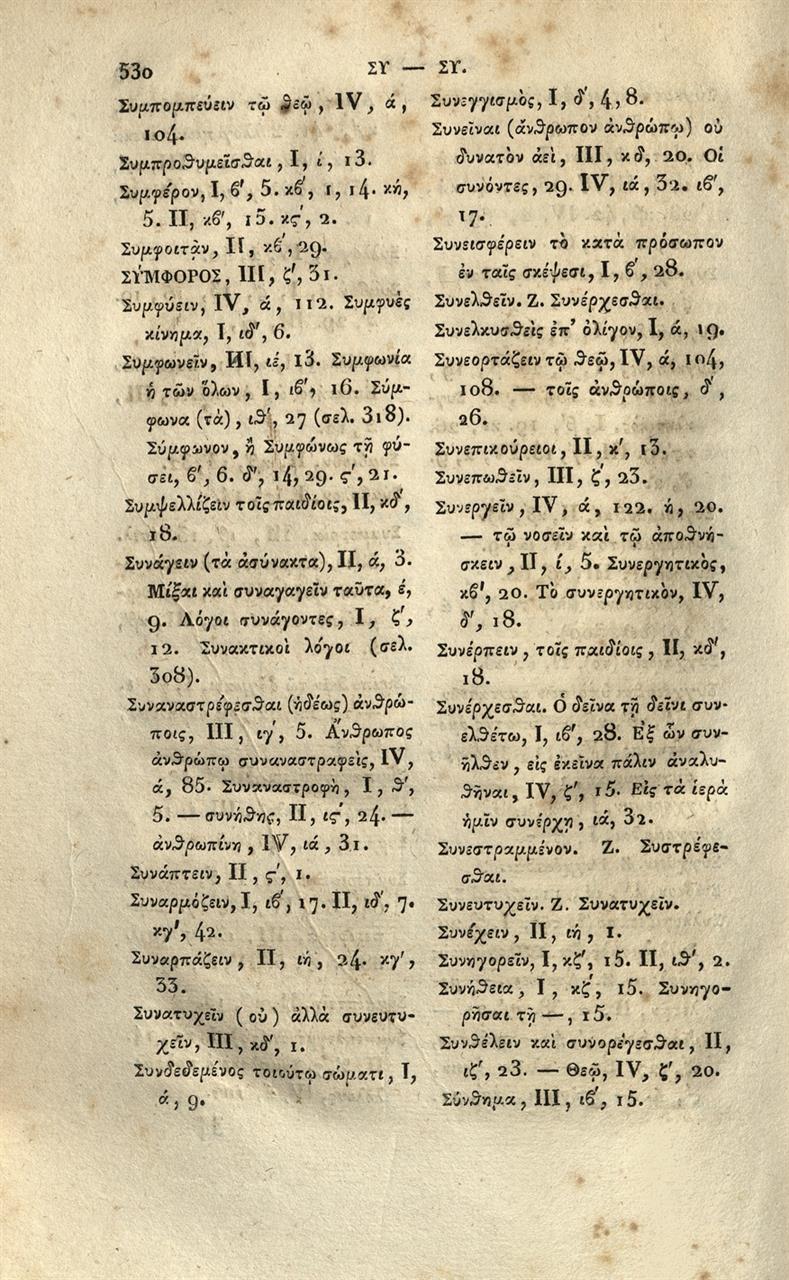 530
ΣΥ — ΣΥ.
Συμπομπεύειν τῷ θεῷ, IV, ά,
104.
Συμπροθυμεῖσθαι, I, ί, 13.
Συμφέρον, I, ϐʹ, 5. κϐʹ, 1, 14. κή,
5. II, κϐʹ, 15. κςʹ, 2.
Συμφοιτᾶν, II, κϐʹ, 29.
ΣΥΜΦΟΡΟΣ, III, ζʹ, 31.
Συμφύειν, IV, ά, 112. Συμφυὲς
κίνημα, I, ιδʹ, 6.
Συμφωνεῖν, III, ιέ, 13. Συμφωνία
ἡ τῶν ὅλων, I, ιϐʹ, 16. Σύμ-
φωνα (τὰ), ιθʹ, 27 (σελ. 318).
Σύμφωνον, ἢ Συμφώνως τῇ φύ-
σει, ϐʹ, 6. δʹ, 14, 29. ςʹ, 21.
Συμψελλίζειν τοῖς παιδίοις, II, κδʹ,
18.
Συνάγειν (τὰ ἀσύνακτα), II, ά, 3.
Μίξαι καὶ συναγαγεῖν ταῦτα, έ,
9. Λόγοι συνάγοντες, I, ζʹ,
12. Συνακτικοὶ λόγοι (σελ.
308).
Συναναστρέφεσθαι (ἡδέως) ἀνθρώ-
ποις, III, ιγʹ, 5. Ἄνθρωπος
ἀνθρώπῳ συναναστραφεὶς, IV,
ά, 85. Συναναστροφὴ, I, θʹ,
5. — συνήθης, II, ιςʹ, 24. —
ἀνθρωπίνη, IV, ιά, 31.
Συνάπτειν, II, ςʹ, 1.
Συναρμόζειν, I, ιϐʹ, 17. II, ιδʹ, 7.
κγʹ, 42.
Συναρπάζειν, II, ιή, 24. κγʹ,
33.
Συνατυχεῖν (οὐ) ἀλλὰ συνευτυ-
χεῖν, III, κδʹ, 1.
Συνδεδεμένος τοιούτῳ σώματι, I,
ά, 9.
Συνεγγισμὸς, I, δʹ, 4, 8.
Συνεῖναι (ἄνθρωπον ἀνθρώπῳ) οὐ
δυνατὸν ἀεὶ, III, κδʹ, 20. Οἱ
συνόντες, 29. IV, ιά, 32. ιϐʹ,
17.
Συνεισφέρειν τὸ κατὰ πρόσωπον
ἐν ταῖς σκέψεσι, I, ϐʹ, 28.
Συνελθεῖν. Ζ. Συνέρχεσθαι.
Συνελκυσθεὶς ἐπ' ὀλίγον, I, ά, 19.
Συνεορτάζειν τῷ θεῷ, IV, ά, 104,
108. — τοῖς ἀνθρώποις, δʹ,
26.
Συνεπικούρειοι, II, κʹ, 13.
Συνεπωθεῖν, III, ζʹ, 23.
Συνεργεῖν, IV, ά, 122. ή, 20.
— τῷ νοσεῖν καὶ τῷ ἀποθνή-
σκειν, II, ί, 5. Συνεργητικὸς,
κϐʹ, 20. Τὸ συνεργητικὸν, IV,
δʹ, 18.
Συνέρπειν, τοῖς παιδίοις, II, κδʹ,
18.
Συνέρχεσθαι. Ὁ δεῖνα τῇ δεῖνι συν-
ελθέτω, I, ιϐʹ, 28. Ἐξ ὧν συν-
ῆλθεν, εἰς ἐκεῖνα πάλιν ἀναλυ-
θῆναι, IV, ζʹ, 15. Εἰς τὰ ἱερὰ
ἡμῖν συνέρχῃ, ιά, 32.
Συνεστραμμένον. Ζ. Συστρέφε-
σθαι.
Συνευτυχεῖν. Ζ. Συνατυχεῖν.
Συνέχειν, II, ιή, 1.
Συνηγορεῖν, I, κζʹ, 15. II, ιθʹ, 2.
Συνήθεια, I, κζʹ, 15. Συνηγο-
ρῆσαι τῇ —, 15.
Συνθέλειν καὶ συνορέγεσθαι, II,
ιζʹ, 23. — Θεῷ, IV, ζʹ, 20.
Σύνθημα, III, ιϐʹ, 15.